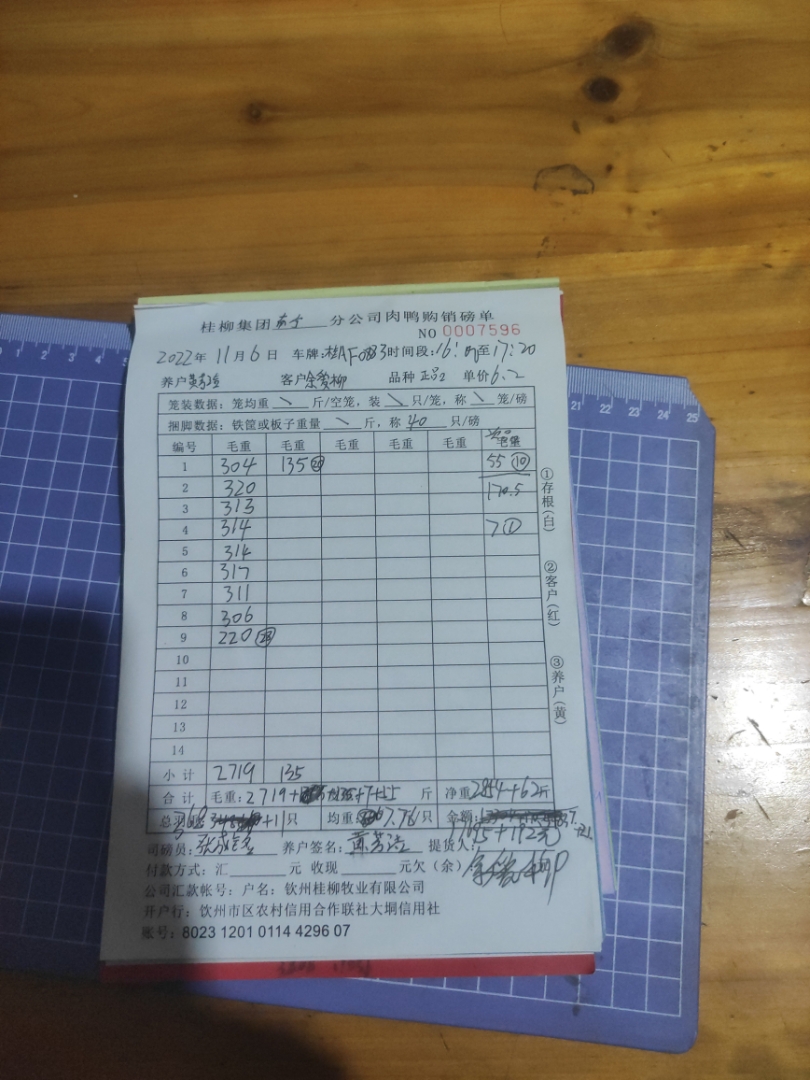 桂柳集团 分公司肉鸭购销磅单
NO 0007596
2022年 11月 6日 车牌: 桂AF0883 时间段: 16: 至 17:20
养户 客户 余爱柳 品种 正品2 单价 6.2
笼装数据: 笼均重 \ 斤/空笼, 装 \ 只/笼, 称 \ 笼/磅
捆脚数据: 铁筐或板子重量 \ 斤, 称 40 只/磅
编号 毛重 毛重 毛重 毛重 毛重 毛重
1 304 135 ⑳ 55 ⑩
2 320 170.5
3 313
4 314 7 ①
5 314
6 317
7 311
8 306
9 220 ㉘
10
11
12
13
14
小计 2719 135
合计 毛重: 2719+ +7+55 斤 净重 2854+62 斤
总只 368 +11 只 均重 7.76 只 金额:
17695+192元
司磅员: 养户签名: 提货人:
付款方式: 汇 元 收现 元欠(余) 余爱柳
公司汇款帐号: 户名: 钦州桂柳牧业有限公司
开户行: 钦州市区农村信用合作联社大垌信用社
账号: 8023 1201 0114 4296 07
①存根(白)
②客户(红)
③养户(黄)
0 1 2 3 4 5
21 22 23 24 25